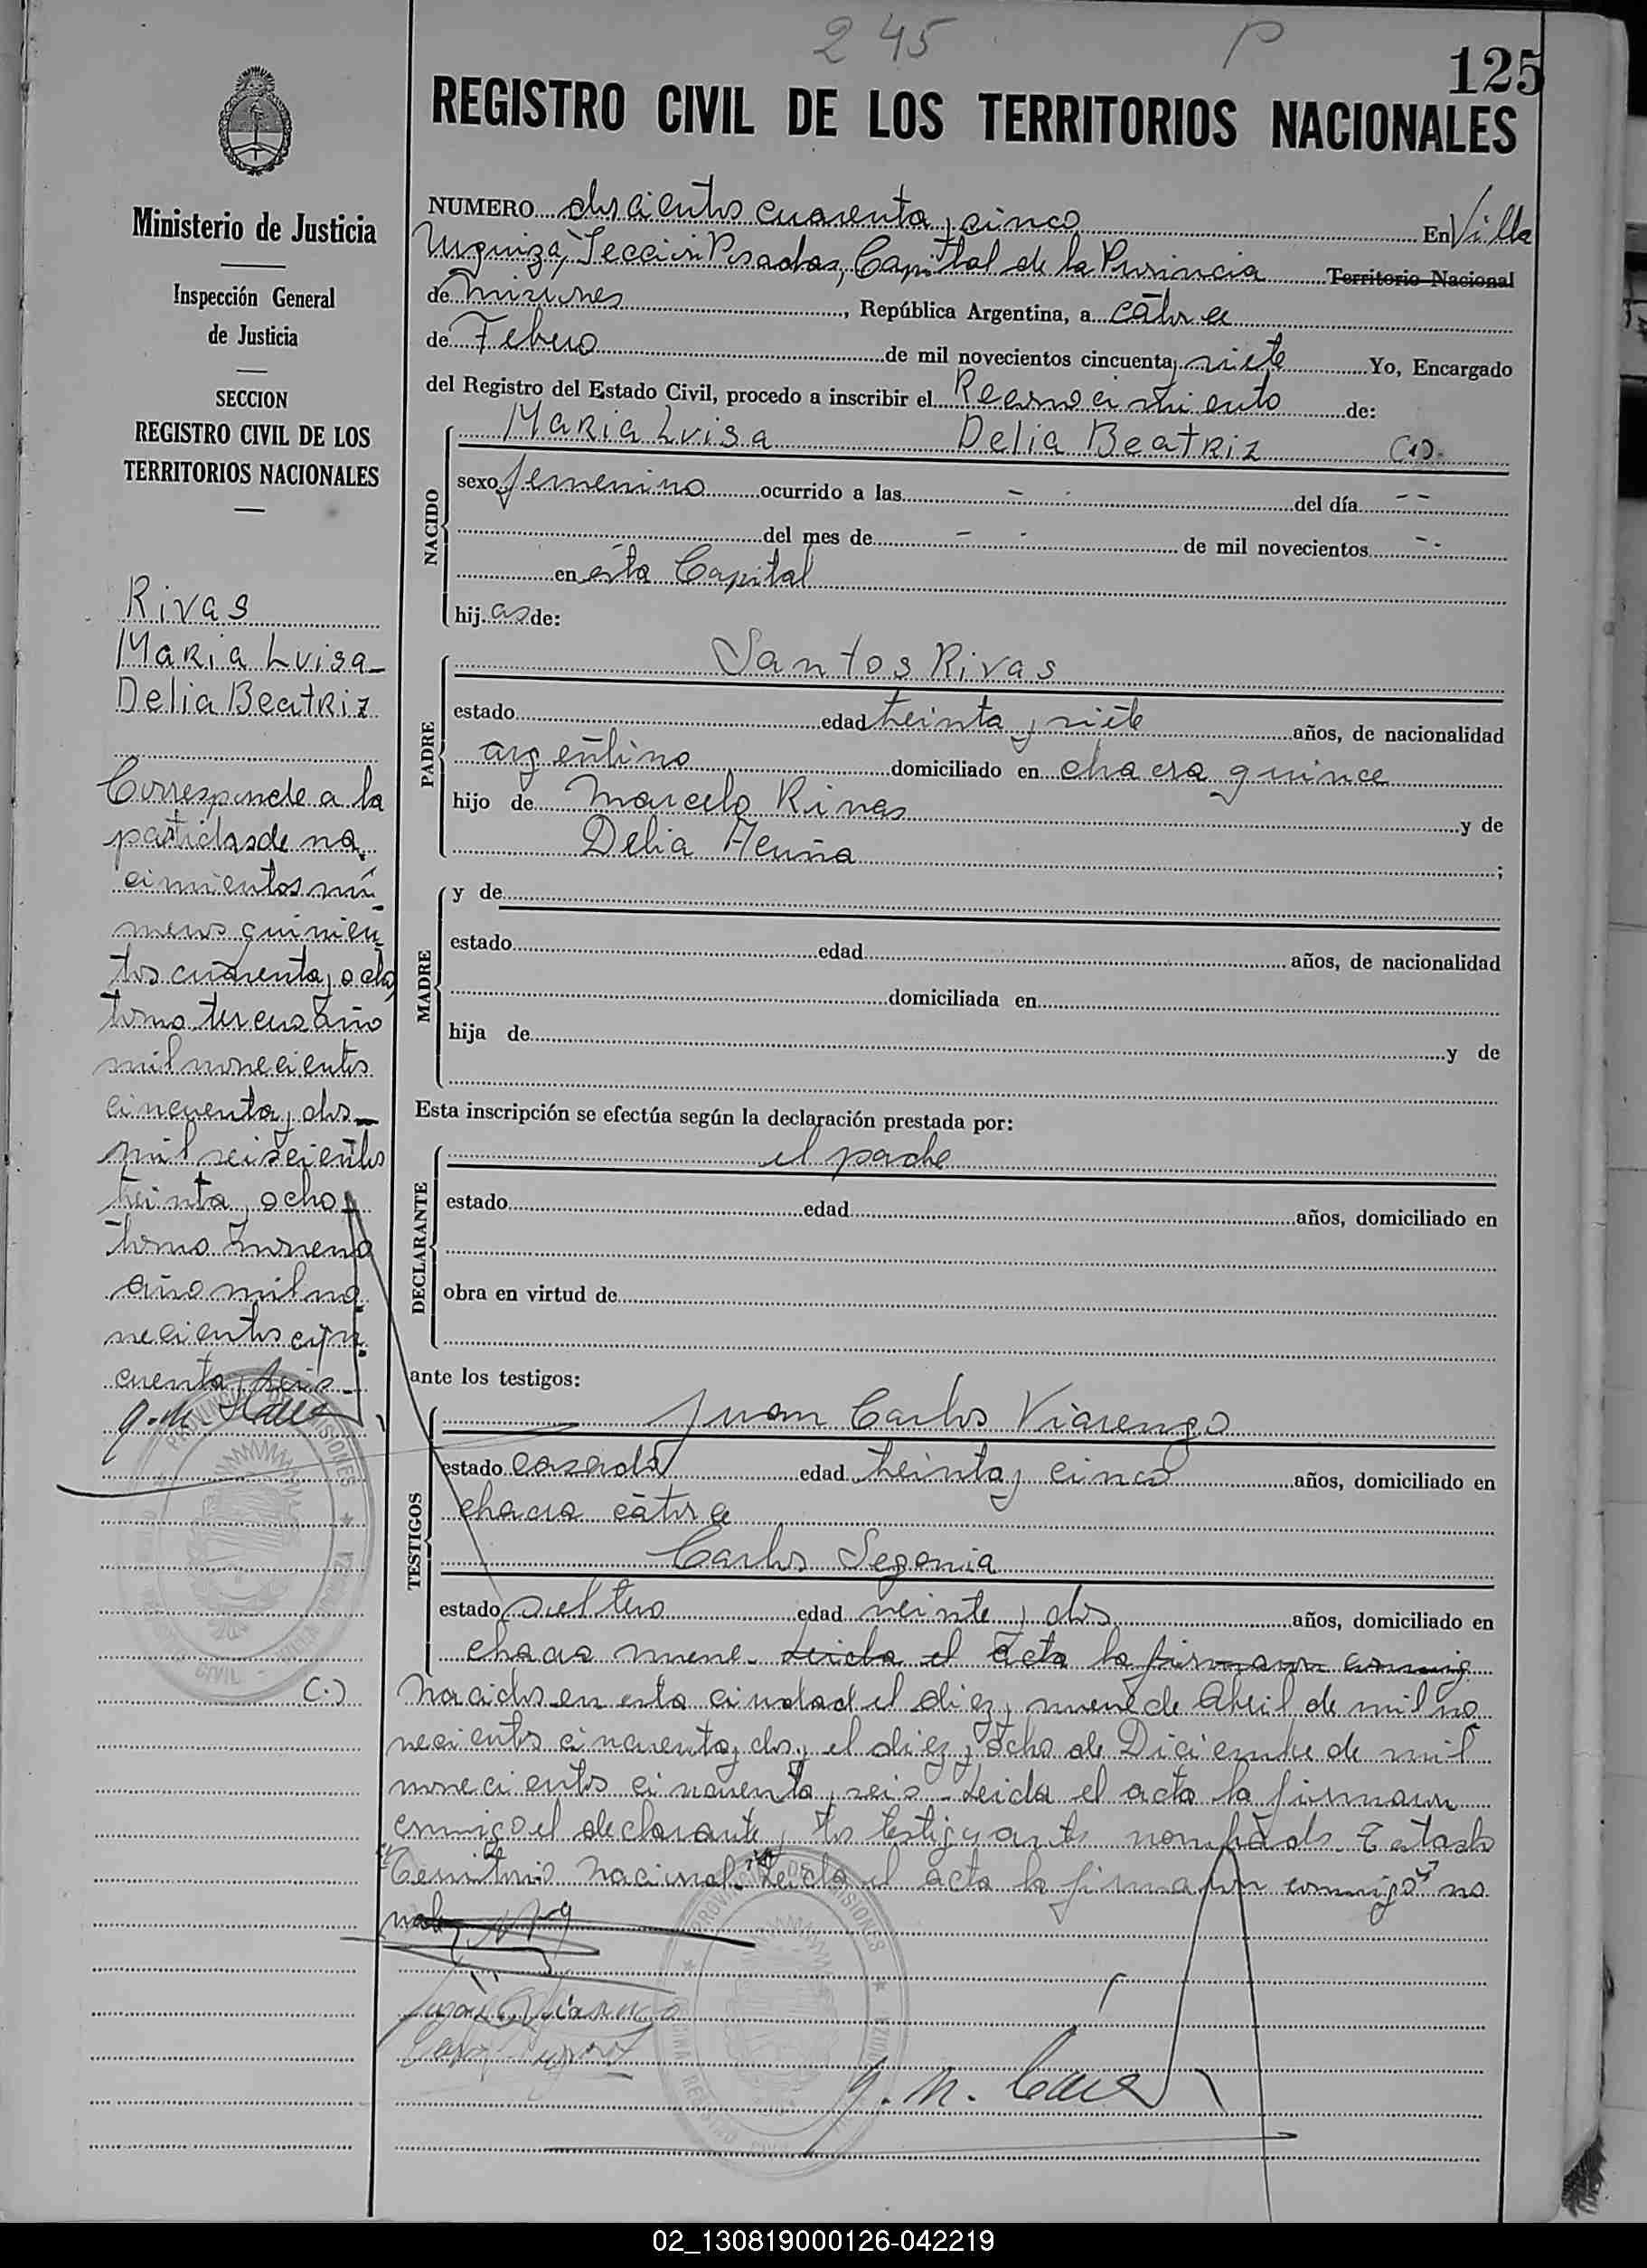 245 P
125
REGISTRO CIVIL DE LOS TERRITORIOS NACIONALES
Ministerio de Justicia
Inspección General
de Justicia
SECCION
REGISTRO CIVIL DE LOS
TERRITORIOS NACIONALES
Rivas
Maria Luisa
Delia Beatriz
Corresponde a la
partidas de na
cimientos nú
meros quinien
tos cuarenta y ocho
tomo tercero año
mil novecientos
cincuenta y dos
mil seiscientos
treinta y ocho
tomo noveno
año mil no
vecientos cin
cuenta y seis
(.)
NUMERO doscientos cuarenta y cinco En Villa
Urquiza, Sección Posadas, Capital de la Provincia Territorio Nacional
de Misiones, República Argentina, a catorce
de Febrero de mil novecientos cincuenta y siete Yo, Encargado
del Registro del Estado Civil, procedo a inscribir el Reconocimiento de:
Maria Luisa Delia Beatriz (.).
NACIDO
sexo femenino ocurrido a las - - del día - -
del mes de - - de mil novecientos - -
en ésta Capital
hijas de:
Santos Rivas
PADRE
estado edad treinta y siete años, de nacionalidad
argentino domiciliado en chacra quince
hijo de Marcelo Rivas y de
Delia
;
MADRE
y de
estado edad años, de nacionalidad
domiciliada en
hija de y de
Esta inscripción se efectúa según la declaración prestada por:
el padre
DECLARANTE
estado edad años, domiciliado en
obra en virtud de
ante los testigos:
TESTIGOS
Juan Carlos Viarengo
estado casado edad treinta y cinco años, domiciliado en
chacra catorce
Carlos Segovia
estado soltero edad veinte y dos años, domiciliado en
chacra nueve. Leida el acta la firmaron conmig
Nacidas en esta ciudad el diez y nueve de Abril de mil no
vecientos cincuenta y dos y el diez y ocho de Diciembre de mil
novecientos cincuenta y seis - Leida el acta la firmaron
conmigo el declarante y los testigos antes nombrados. Testado
"Territorio Nacional" "Leida el acta la firmaron conmigo" no
vale
PROVINCIA DE MISIONES
REGISTRO CIVIL
02_130819000126-042219